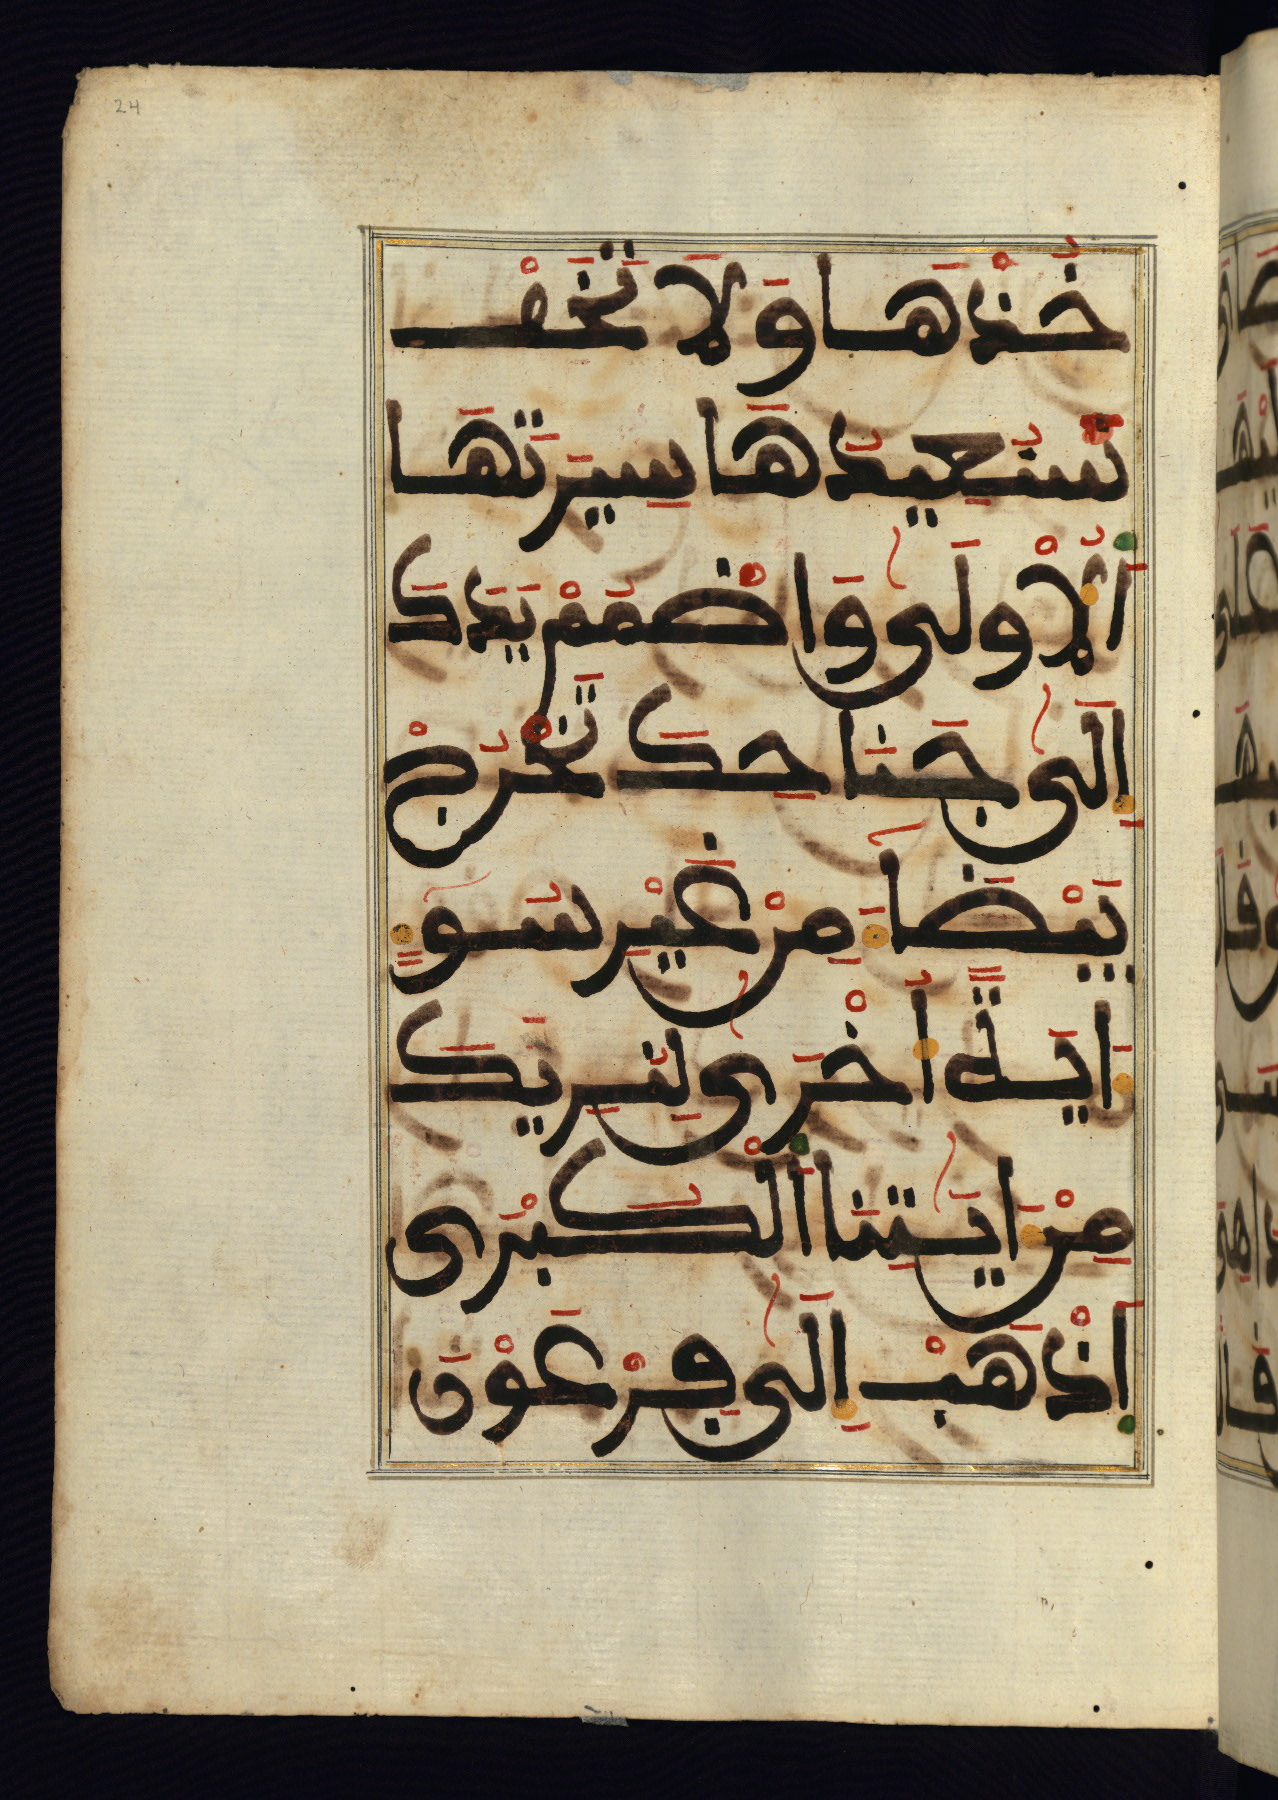 24
خُذْهَا وَلَا تَخَفْ
سَنُعِيدُهَا سِيرَتَهَا
اَلُاولٰى وَاضْمُمْ يَدَكَ
إِلٰى جَنَاحِكَ تَخْرُجْ
بَيْضَآءَ مِنْ غَيْرِ سُوٓءٍ
ءَايَةً أُخْرٰى لِنُرِيَكَ
مِنَ ايَٰتِنَا اَلْكُبْرَى
اَذْهَبْ إِلٰى فِرْعَوْنَ